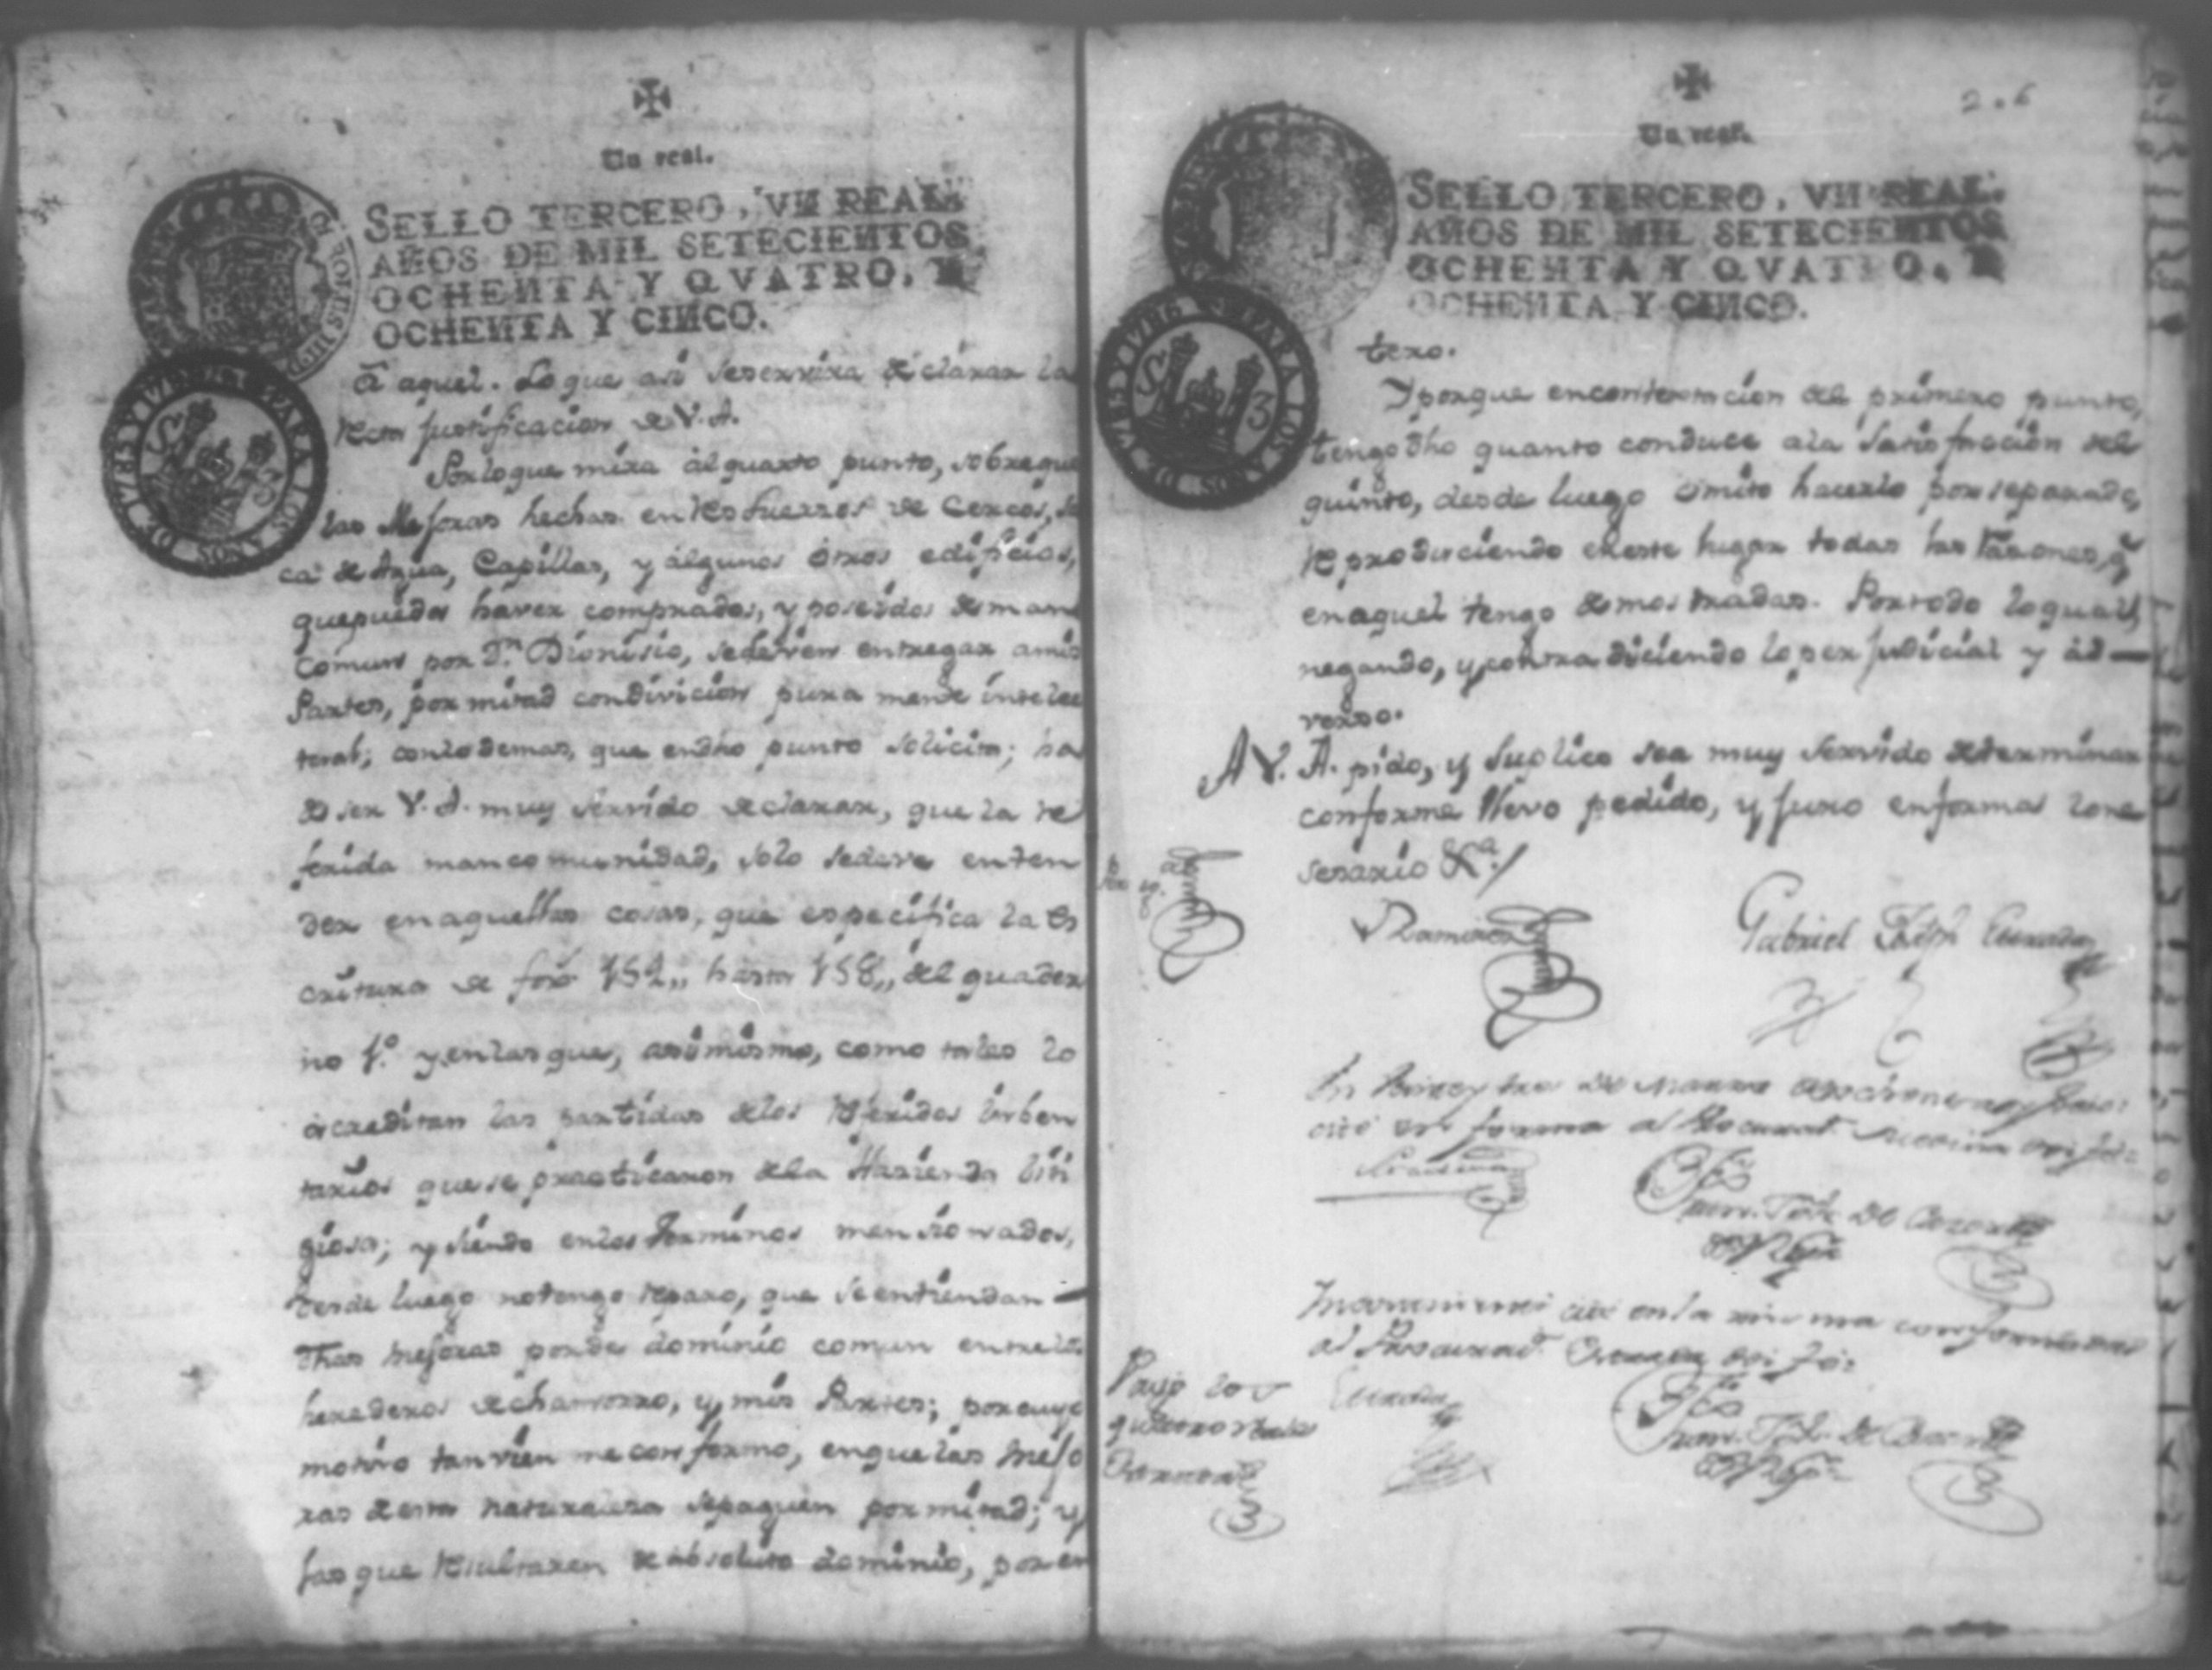 Un real.
SELLO TERCERO, VN REAL,
AÑOS DE MIL SETECIENTOS
OCHENTA Y QVATRO, Y
OCHENTA Y CINCO.
PARA LOS AÑOS DE 1785 Y 1786
S 3
â aquel. Lo que asi se servira declarar la
recta justificacion de V. A.
Por lo que mira àl quarto punto, sobre que
las Mejoras hechas en de Cercos, Sa
ca de Agua, Capillas, y àlgunos ótros edificios,
que puedas haver comprados, y poseidos de man
comun por Dn. Dionisio, se deven entregar a mis
Partes, por mitad con divicion pura mente intelec
tual; con lo demas, que en dho punto solicita; ha
de ser V. A. muy servido declarar, que la re
ferida mancomunidad, solo se deve enten
der en aquellas cosas, que especifica la Es
critura de fox 152,, hasta 158,, del quader
no 1.º y en las que, asimismo, como tales lo
acreditan las partidas de los referidos Imben
tarios que se practicaron de la Hazienda liti
giosa; y siendo en los terminos mencionados,
desde luego no tengo reparo, que se entiendan
dhas mejoras por de dominio comun entre los
herederos de chamorro, y mis Partes; por cuyo
motivo tanvien me conformo, en que las mejo
ras de esta naturaleza se paguen por mitad; y
las que resultaren de absoluto dominio, por en
Un real.
SELLO TERCERO, VN REAL,
AÑOS DE MIL SETECIENTOS
OCHENTA Y QVATRO, Y
OCHENTA Y CINCO.
PARA LOS AÑOS DE 1785 Y 1786
S 3
tero.
Y porque en contextacion del primero punto,
tengo dho quanto conduce a la satisfaccion del
quinto, desde luego ómito hacerlo por separado,
reproduciendo en este lugar todas las rasones, q̃
en aquel tengo demostradas. Por todo lo qual,
negando, y contradiciendo lo perjudicial y ad
verso.
A V. A. pido, y suplico sea muy servido determinar
conforme llevo pedido, y juro en forma lo ne
sesario &a.
Gabriel Jph
En veinte y tres de Marzo
cité en forma al Procurad.r Medina doi fee
al Procurad.r doi fee
Pago los